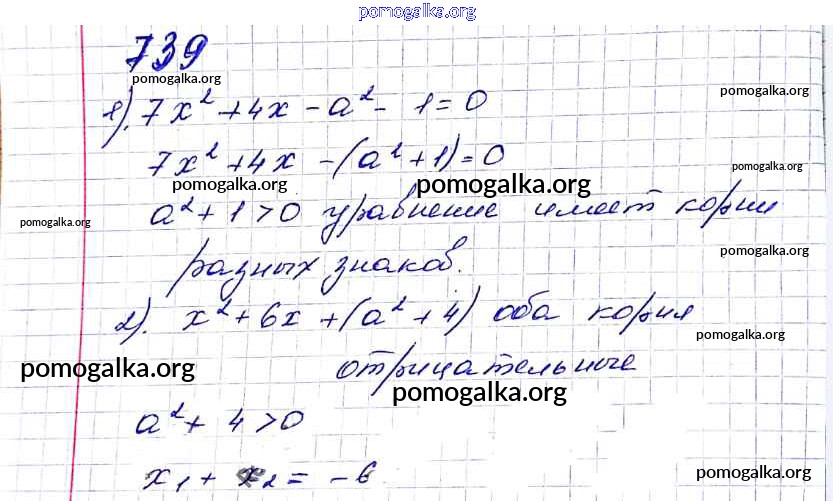 pomogalka.org
739
pomogalka.org
pomogalka.org
1). 7x² + 4x - a² - 1 = 0
7x² + 4x - (a² + 1) = 0
pomogalka.org
pomogalka.org
pomogalka.org
a² + 1 > 0 уравнение имеет корни
pomogalka.org
pomogalka.org
разных знаков.
2). x² + 6x + (a² + 4) оба корня
pomogalka.org
отрицательные
pomogalka.org
pomogalka.org
a² + 4 > 0
x₁ + x₂ = -6
pomogalka.org